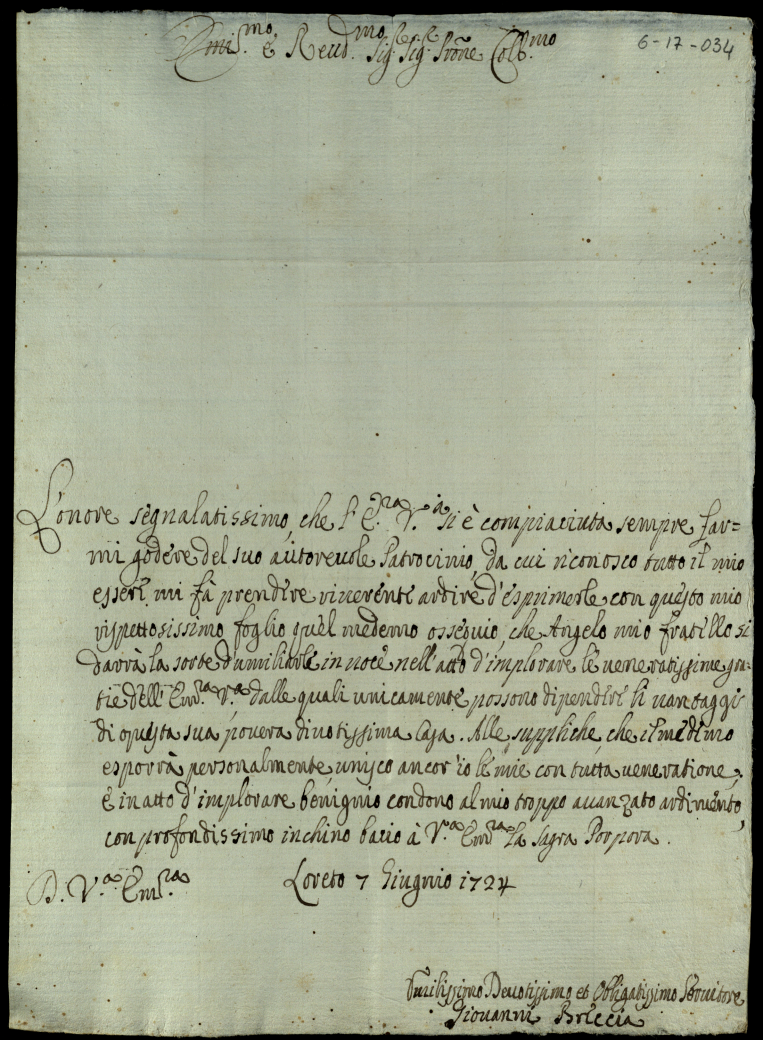 Emi.mo e Reud.mo Sig.r Sig.r Prõne Coll.mo
6-17-034
L'onore segnalatissimo, che l'E.ra V.a si è compiaciuta sempre far=
mi godere del suo autoreuole Patrocinio, da cui riconosco tutto il mio
essere, mi fà prendere riuerente ardire d'esprimerle con questo mio
rispettosissimo foglio quel medemo ossequio, che Angelo mio fratello si
darrà la sorte d'umiliarle in uoce nell'atto d'implorare le ueneratissime gra=
tie dell'Em.ra V.ra dalle quali unicamente possono dipendere li uantaggi
di questa sua pouera diuotissima Casa. Alle suppliche, che il medemo
esporrà personalmente, unisco ancor'io le mie con tutta ueneratione;
e in atto d'implorare benignio condono al mio troppo auanzato ardimento,
con profondissimo inchino bacio à V.ra Em.ra la sagra Porpora.
D. V.a Em.ra
Loreto 7 Giugnio 1724
Umilissimo Deuotissimo et Obligatissimo Seruitore
Giouanni Breccia